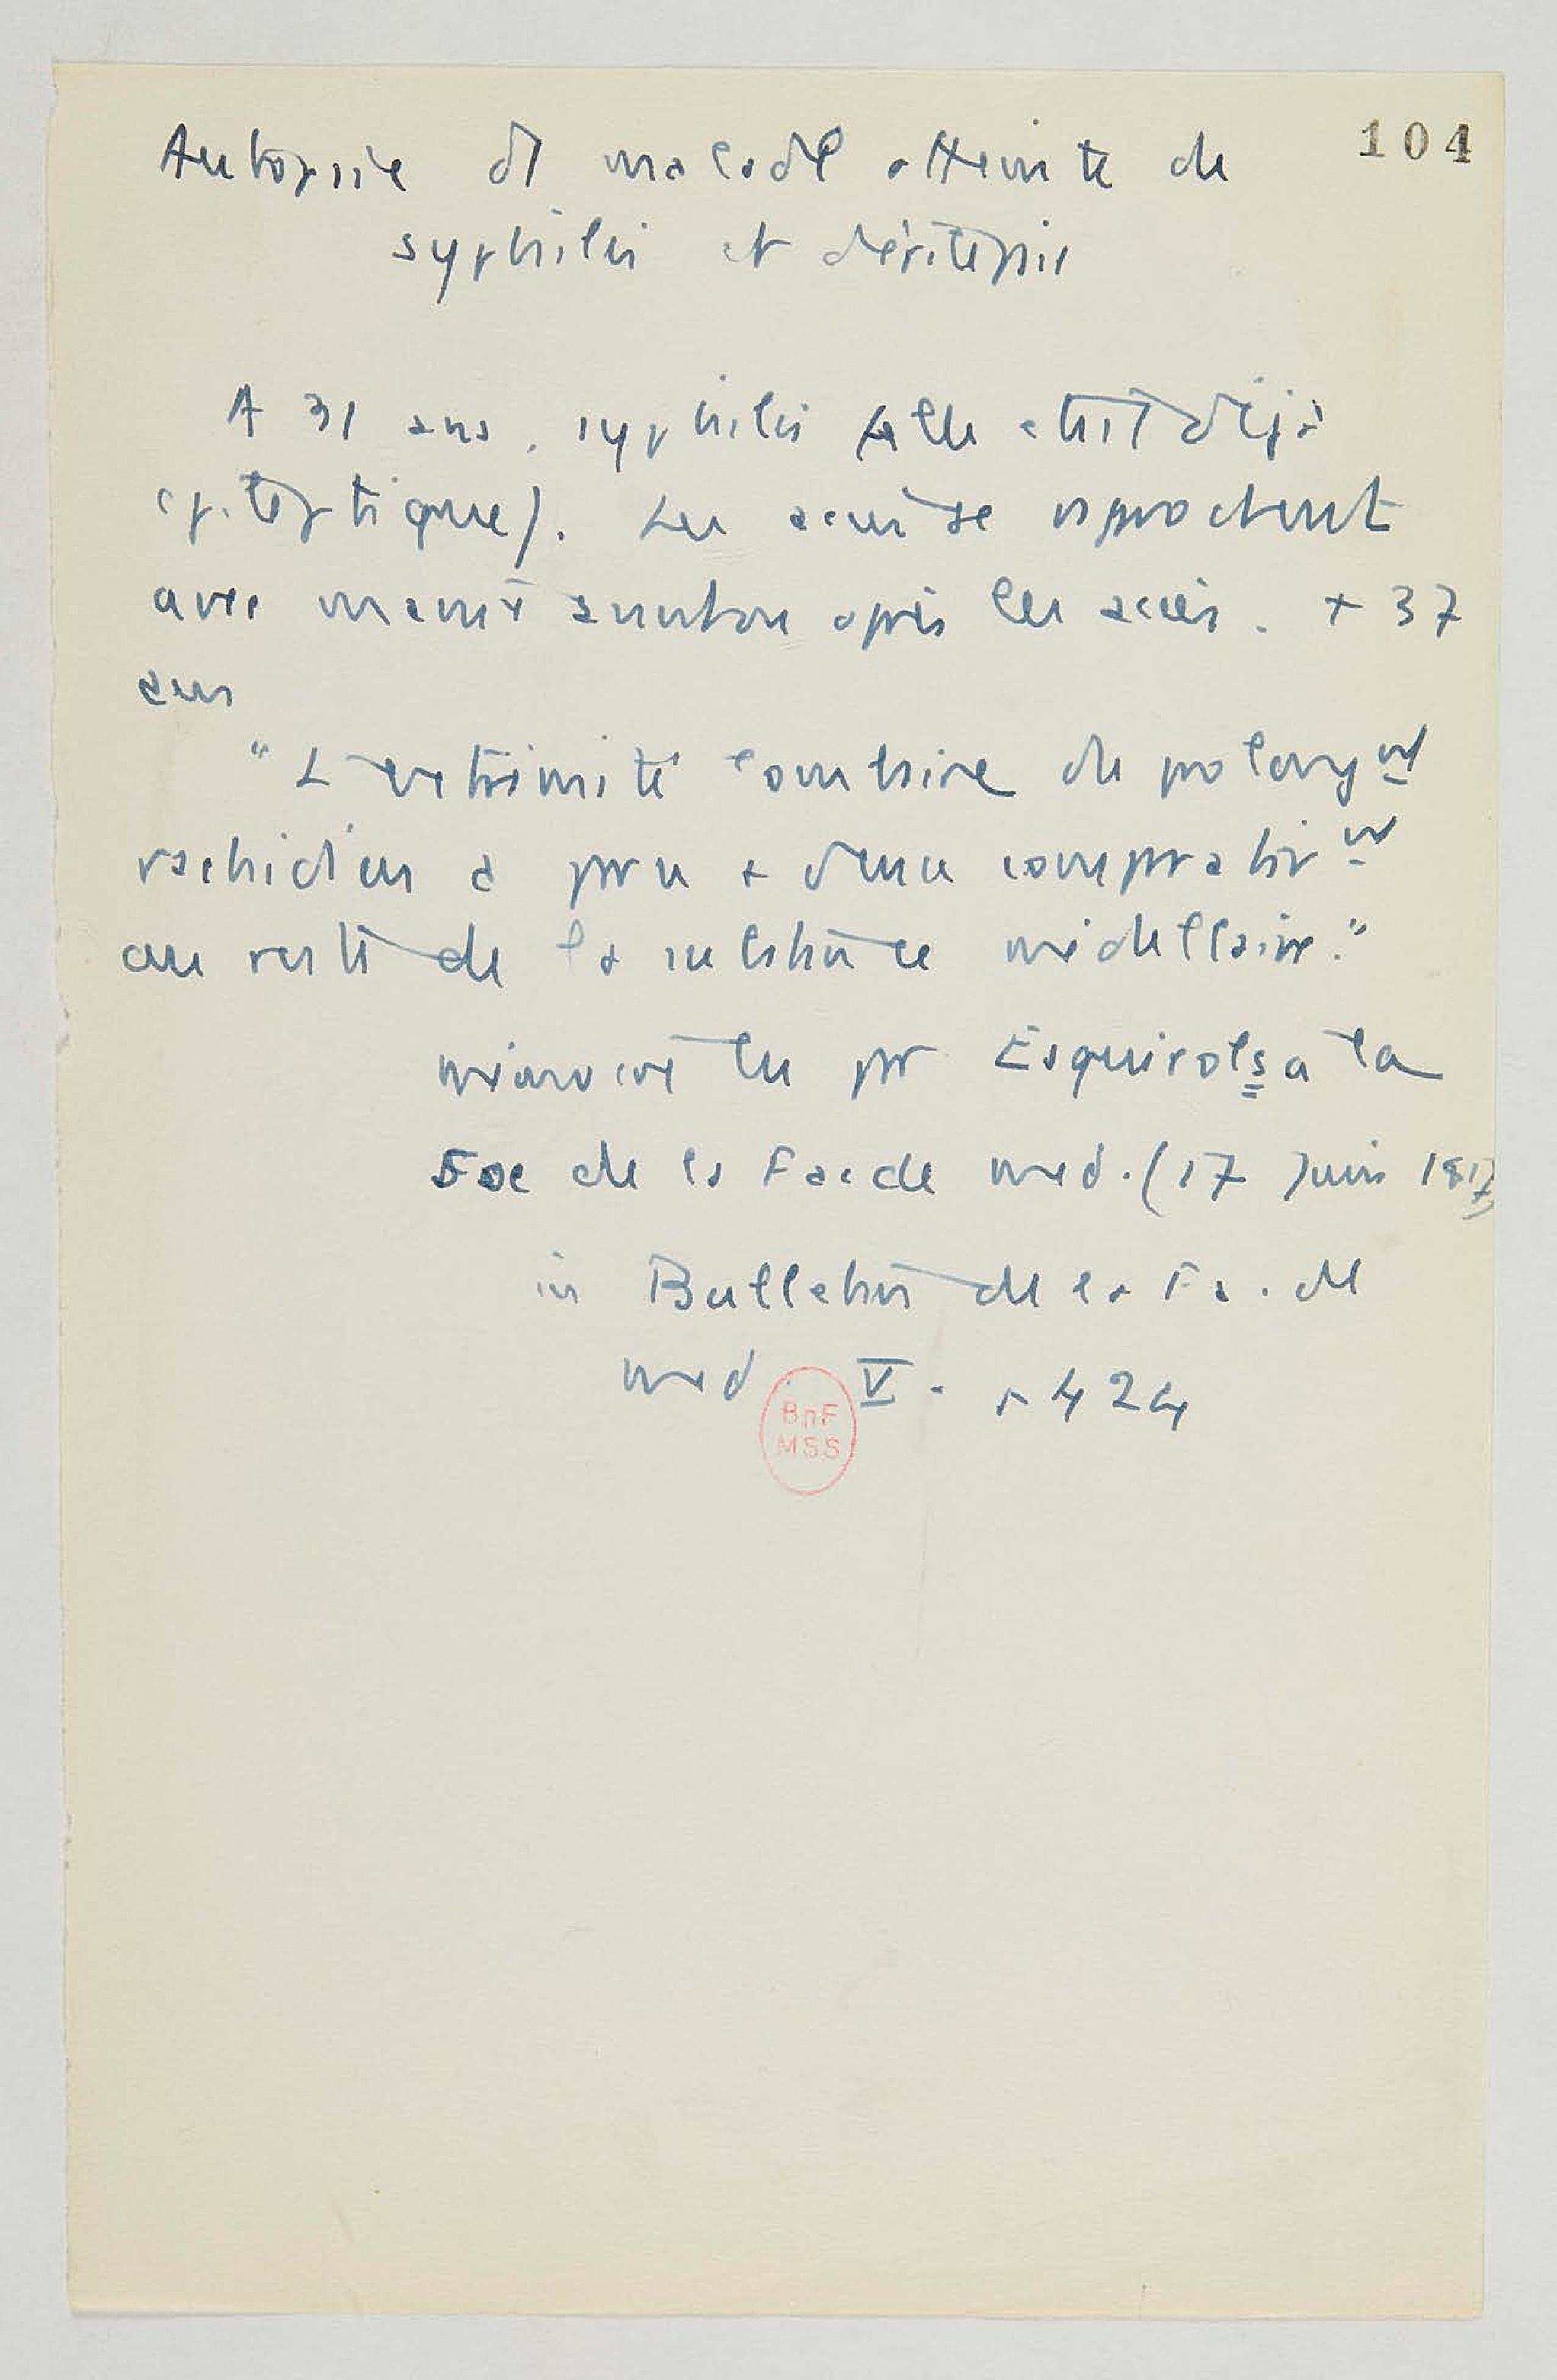 104
Autopsie d'1 malade atteinte de
syphilis et d'épilepsie
A 31 ans, syphilis (elle était déjà
épileptique). Les accès se rapprochent
avec manie surtout après les accès. + 37
ans
"L'extrémité lombaire du prolong^nt
rachidien a peu + dense comparativ^nt
au reste de la substance médullaire."
mémoire lu par Esquirol à la
Soc de la Fac de med. (17 Juin 1817)
in Bulletin de la Fa. de
med. V. p 424
BnF
MSS